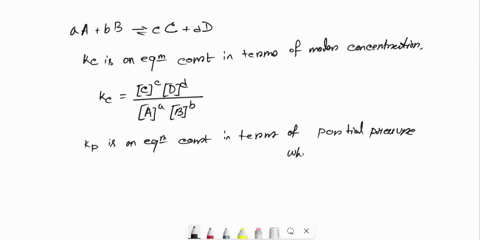 aA + bB ⇌ cC + dD
Kc is an eqm const in terms of molar concentration.
Kc = [C]^c [D]^d / [A]^a [B]^b
Kp is an eqm const in terms of partial pressure
wh